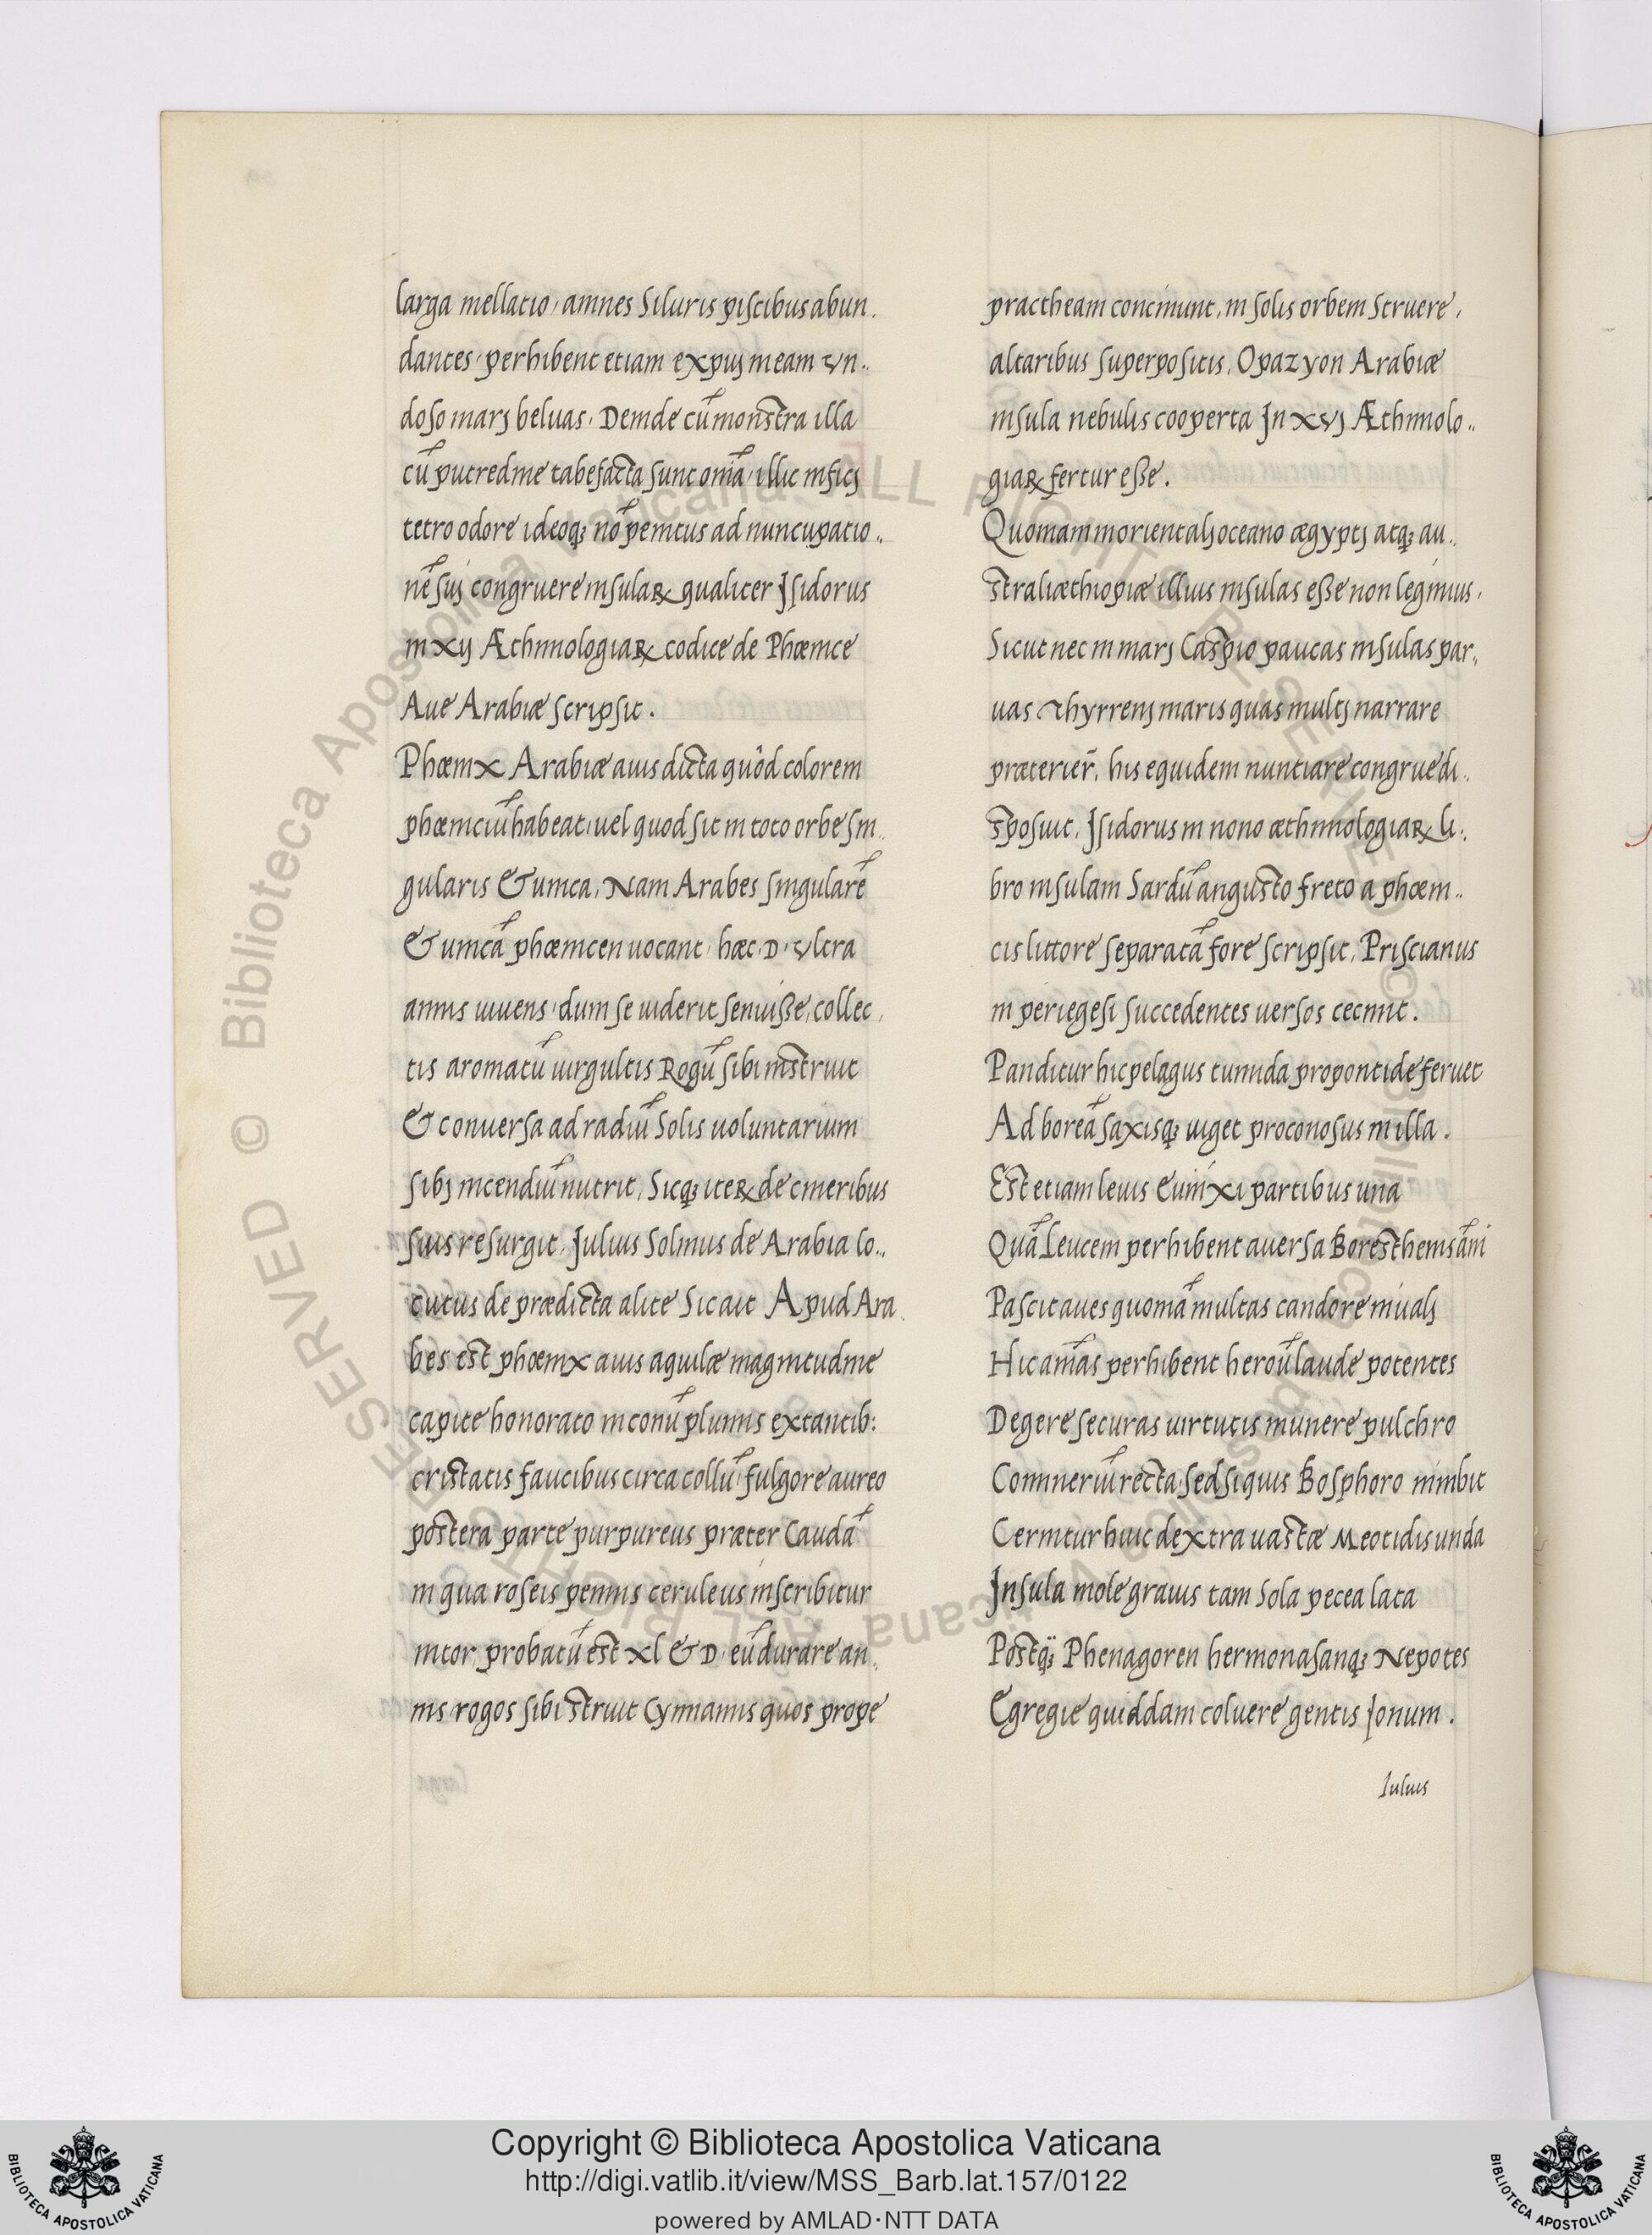 larga mellatio, amnes Siluris piscibus abun.
dantes, perhibent etiam expuimeam vn..
doso marj beluas, Deinde cū monstra illa
cū putredine tabefacta sunt omīa, illic inficj
tetro odore ideoq; nō penitus ad nuncupatio..
nē suj congruere insulaꝝ qualiter Jsidorus
in xij Æthimologiaꝝ codice de Phœnice
Aue Arabiæ scripsit.
Phœnix Arabiæ auis dicta quòd colorem
phœniciū habeat, uel quod sit in toto orbe sin..
gularis & unica, Nam Arabes singularē
& unicā phœnicen uocant, hæc. D. vltra
annis uiuens, dum se uiderit senuisse, collec.
tis aromatū uirgultis Rogū sibi instruit
& conuersa ad radiū Solis uoluntarium
sibj incendiū nutrit, Sicq; iteꝝ de cineribus
suis resurgit, Julius Solinus de Arabia lo..
cutus de prædicta alite Sic ait Apud Ara.
bes est phœnix auis aquilæ magnitudine
capite honorato in conū plumis extantib:
cristatis faucibus circa collū, fulgore aureo
postera parte purpureus præter Caudā
in qua roseis pennis ceruleus inscribitur
nitor, probatū est xl & D. eū durare an..
nis, rogos sibi struit Cynnamis quos prope
practheam concinunt, in solis orbem Struere,
altaribus superpositis, Opazyon Arabiæ
insula nebulis cooperta Jn xvj Æthimolo..
giaꝝ fertur esse.
Quoniam in orientalj oceano ægyptj atq; au..
straliæthiopiæ illius insulas esse non legimus,
Sicut nec in marj Caspio paucas insulas par..
uas Thyrrenj maris quas multj narrare
præterier̄, his equidem nuntiare congrue di..
sposuit, Jsidorus in nono æthimologiaꝝ li..
bro insulam Sardū angusto freto a phœni..
cis littore separatā fore scripsit, Priscianus
in periegesi succedentes uersos cecinit.
Panditur hic pelagus tumida propontide feruet
Ad boreā saxisq; uiget proconosus in illa.
Est etiam leuis Euinxi partibus una
Quā Leucem perhibent auersa Boresthenis ām
Pascit aues quoniā multas candore niualj
Hic animās perhibent heroū laude potentes
Degere securas uirtutis munere pulchro
Comneriū recta, sed siquis Bosphoro nimbit
Cernitur huic dextra uastæ Meotidis unda
Jnsula mole grauis tam Sola pecea lata
Postq; Phenagoren hermonasanq; Nepotes
Egregie quiddam coluere gentis Jonum.
Iulius
Copyright © Biblioteca Apostolica Vaticana
http://digi.vatlib.it/view/MSS_Barb.lat.157/0122
powered by AMLAD·NTT DATA